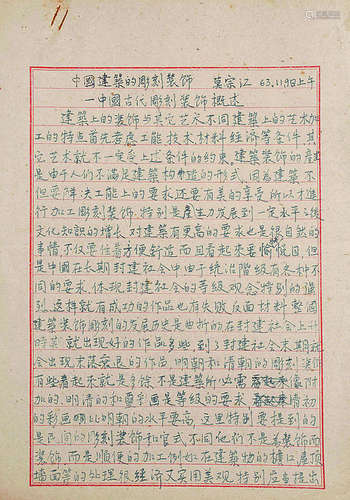 11
中國建築的彫刻装飾 莫宗江 63.1.19日上午
一中國古代彫刻装飾概述
建筑上的装飾与其它艺术不同建築上的艺术加
工的特点首先考慮工能技术材料經济等条件其
它艺术就不一定受上述条件的約束,建築装飾的產生
是由于人们不满足建築构造的形式,因為建築不
但要解决工能上的要求还要有美的享受所以才進
行加工彫刻装飾,特别是產生了发展到一定水平之後
文化知识的增长对建築有更高的要求也是很自然的
事情不仅要住着方便舒適而且看起來要愉快悦目,但
是中國在长期封建社会中由于統治階級有各种不
同的要求体现封建社会的等級观念特别的强
烈,这样就有成功的作品也有失敗反面材料整個
建築装飾彫刻的发展历史是曲折的在封建社会上升
時其就出現好的作品多些到了封建社会末期就
会出現末落衰退的作品,明朝和清朝的彫刻装飾
有些看起來就是多馀不是建築所必需 附
加的,明清的和璽彩画是等級的要求 清初
的彩画啊比明朝的水平要高,这里特别要提到的
是民间的彫刻装飾和官式不同他们不是為装飾而
装飾而是順便的加工例如在建築物的檐口,屋頂
墙面等的处理很經济又实用美观,特别应当提出